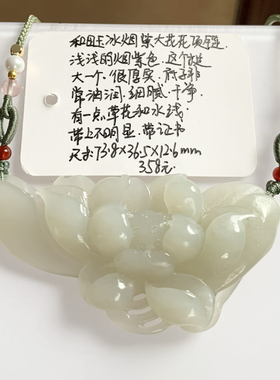 和田玉冰烟紫大花花项链.
浅浅的烟紫色.这个链
大一个.很厚实.底子非
常油润.细腻.干净.
有一点草花和水线
带上不明显.带证书
尺寸:73.8×36.5×12.6mm
358元.